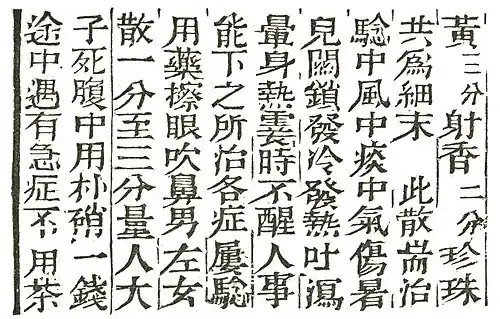 黃三分射香二分珍珠
共爲細末 此散耑治
騐中風中痰中氣傷暑
兒關鎖發冷發熱吐瀉
暈身熱霎時不醒人事
能下之所治各症屢騐
用藥擦眼吹鼻男左女
散一分至三分量人大
子死腹中用朴硝一錢
途中遇有急症不用茶